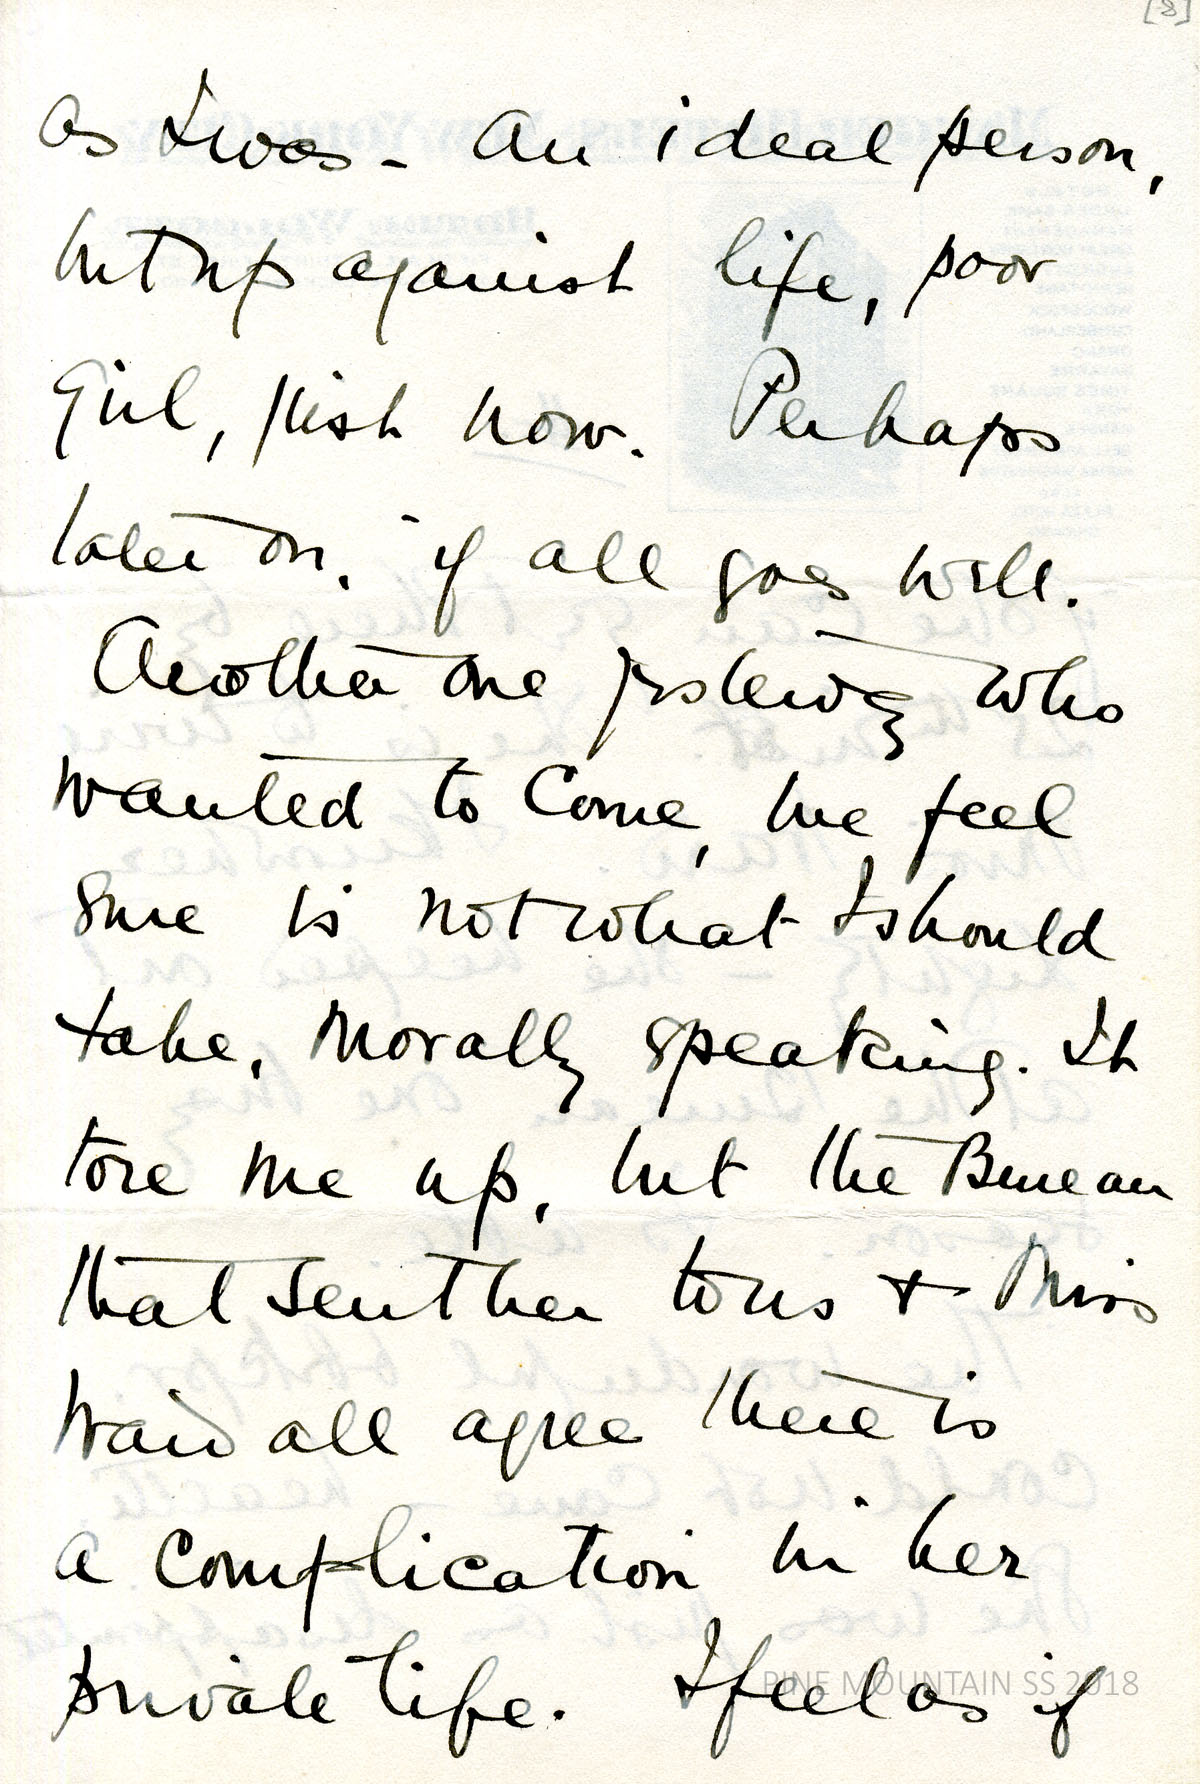 [8]
as I was - An ideal person,
but up against life, poor
girl, just now. Perhaps
later on, if all goes well.
Another one yesterday who
wanted to come, we feel
sure is not what I should
take, morally speaking. It
tore me up, but the Bureau
that sent her to us + Miss
Waid all agree there is
a complication in her
private life. I feel as if
PINE MOUNTAIN SS 2018